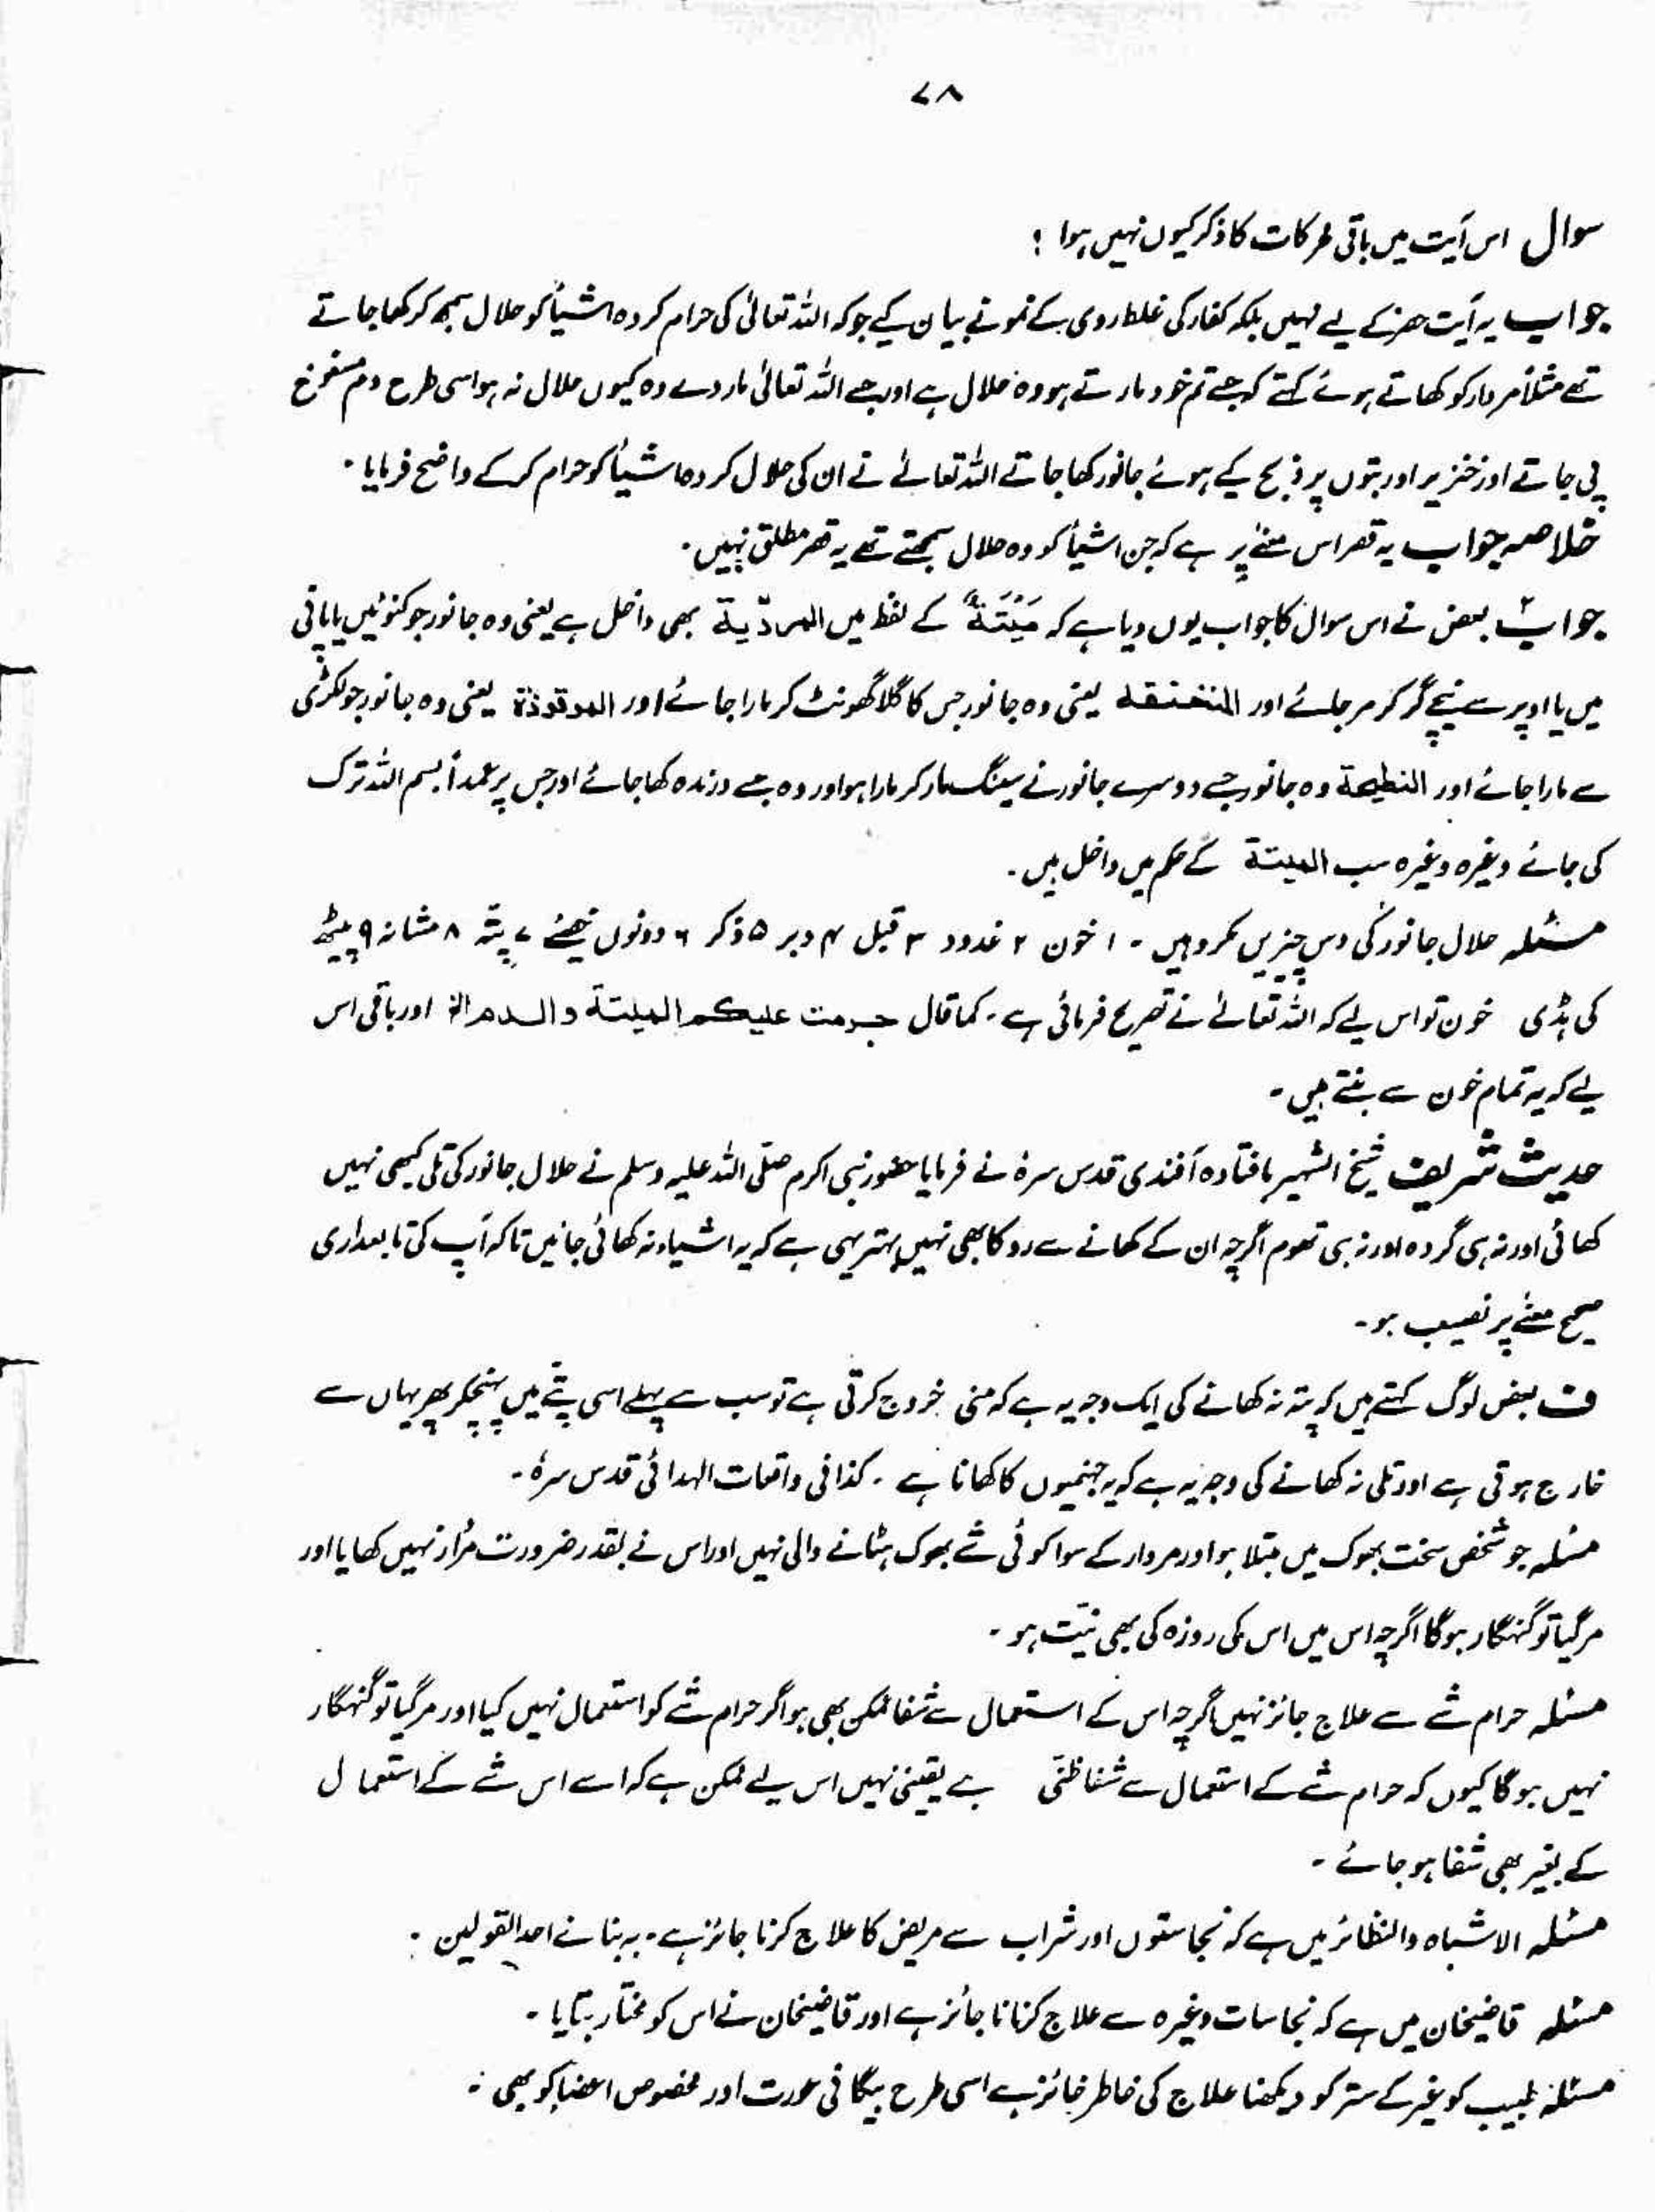 ۷۸
سوال اس آیت میں باقی محرکات کا ذکر کیوں نہیں ہوا ؛
جواب یہ آیت حصر کے لیے نہیں بلکہ کفار کی غلط روی کے نمونے بیان کیے جو کہ اللہ تعالیٰ کی حرام کردہ اشیأ کو حلال سمجھ کر کھا جاتے
تھے مثلاً مردار کو کھاتے ہوئے کہتے کہ جسے تم خود مارتے ہو وہ حلال ہے اور جسے اللہ تعالیٰ مار دے وہ کیوں حلال نہ ہو اسی طرح دم مسفوح
پی جاتے اور خنزیر اور بتوں پر ذبح کیے ہوئے جانور کھا جاتے اللہ تعالےٰ نے ان کی حلال کردہ اشیأ کو حرام کرکے واضح فرمایا ۔
خلاصہ جواب یہ قصر اس معنےٰ پر ہے کہ جن اشیأ کو وہ حلال سمجھتے تھے یہ قصر مطلق نہیں ۔
جواب بعض نے اس سوال کا جواب یوں دیا ہے کہ مَیْتَۃً کے لفظ میں المردّیۃ بھی داخل ہے یعنی وہ جانور جو کنوئیں یا پانی
میں یا اوپر سے نیچے گر کر مر جائے اور المنخنقہ یعنی وہ جانور جس کا گلا گھونٹ کر مارا جائے اور الموقوذۃ یعنی وہ جانور جو لکڑی
سے مارا جائے اور النطیحۃ وہ جانور جسے دوسرے جانور نے سینگ مار کر مارا ہو اور وہ جسے درندہ کھا جائے اور جس پر عمداً بسم اللہ ترک
کی جائے وغیرہ وغیرہ سب المیتۃ کے حکم میں داخل ہیں ۔
مسئلہ حلال جانور کی دس چیزیں مکروہیں ۔ ۱ خون ۲ غدود ۳ قبل ۴ دبر ۵ ذکر ۶ دونوں خصئے ۷ پتّہ ۸ مثانہ ۹ پیٹھ
کی ہڈی خون تو اس لیے کہ اللہ تعالےٰ نے تصریح فرمائی ہے ۔ کما قال حرمت علیکم المیتۃ والدم الخ اور باقی اس
لیے کہ یہ تمام خون سے بنتے ہیں ۔
حدیث شریف شیخ الشہیر بافتادہ آفندی قدس سرہٗ نے فرمایا حضور نبی اکرم صلّی اللہ علیہ وسلم نے حلال جانور کی تلی کبھی نہیں
کھائی اور نہ ہی گردہ اور نہ ہی تھوم اگرچہ ان کے کھانے سے روکا بھی نہیں بہتر یہی ہے کہ یہ اشیاء نہ کھائی جائیں تاکہ آپ کی تابعداری
صحیح معنےٰ پر نصیب ہو ۔
ف بعض لوگ کہتے ہیں کہ پتہ نہ کھانے کی ایک وجہ یہ ہے کہ منی خروج کرتی ہے تو سب سے پہلے اسی پتّے میں پہنچکر پھر یہاں سے
خارج ہوتی ہے اور تلی نہ کھانے کی وجہ یہ ہے کہ یہ جہنمیوں کا کھانا ہے ۔ کذافی واقعات الہدائی قدس سرہٗ ۔
مسئلہ جو شخص سخت بھوک میں مبتلا ہو اور مردار کے سوا کوئی شے بھوک ہٹانے والی نہیں اور اس نے بقدر ضرورت مُرار نہیں کھایا اور
مر گیا تو گنہگار ہوگا اگرچہ اس میں اس کی روزہ کی بھی نیّت ہو ۔
مسئلہ حرام شے سے علاج جائز نہیں اگرچہ اس کے استعمال سے شفا ممکن بھی ہو اگر حرام شے کو استعمال نہیں کیا اور مر گیا تو گنہگار
نہیں ہوگا کیوں کہ حرام شے کے استعمال سے شفا ظنّی ہے یقینی نہیں اس لیے ممکن ہے کہ اسے اس شے کے استعمال
کے بغیر بھی شفا ہو جائے ۔
مسئلہ الاشباہ والنظائر میں ہے کہ نجاستوں اور شراب سے مریض کا علاج کرنا جائز ہے ۔ بہ بنائے احد القولین ۔
مسئلہ قاضیخان میں ہے کہ نجاسات وغیرہ سے علاج کرنا ناجائز ہے اور قاضیخان نے اس کو مختار بتایا ۔
مسئلہ طبیب کو غیر کے ستر کو دیکھنا علاج کی خاطر جائز ہے اسی طرح بیگانی عورت اور مخصوص اعضا کو بھی ۔